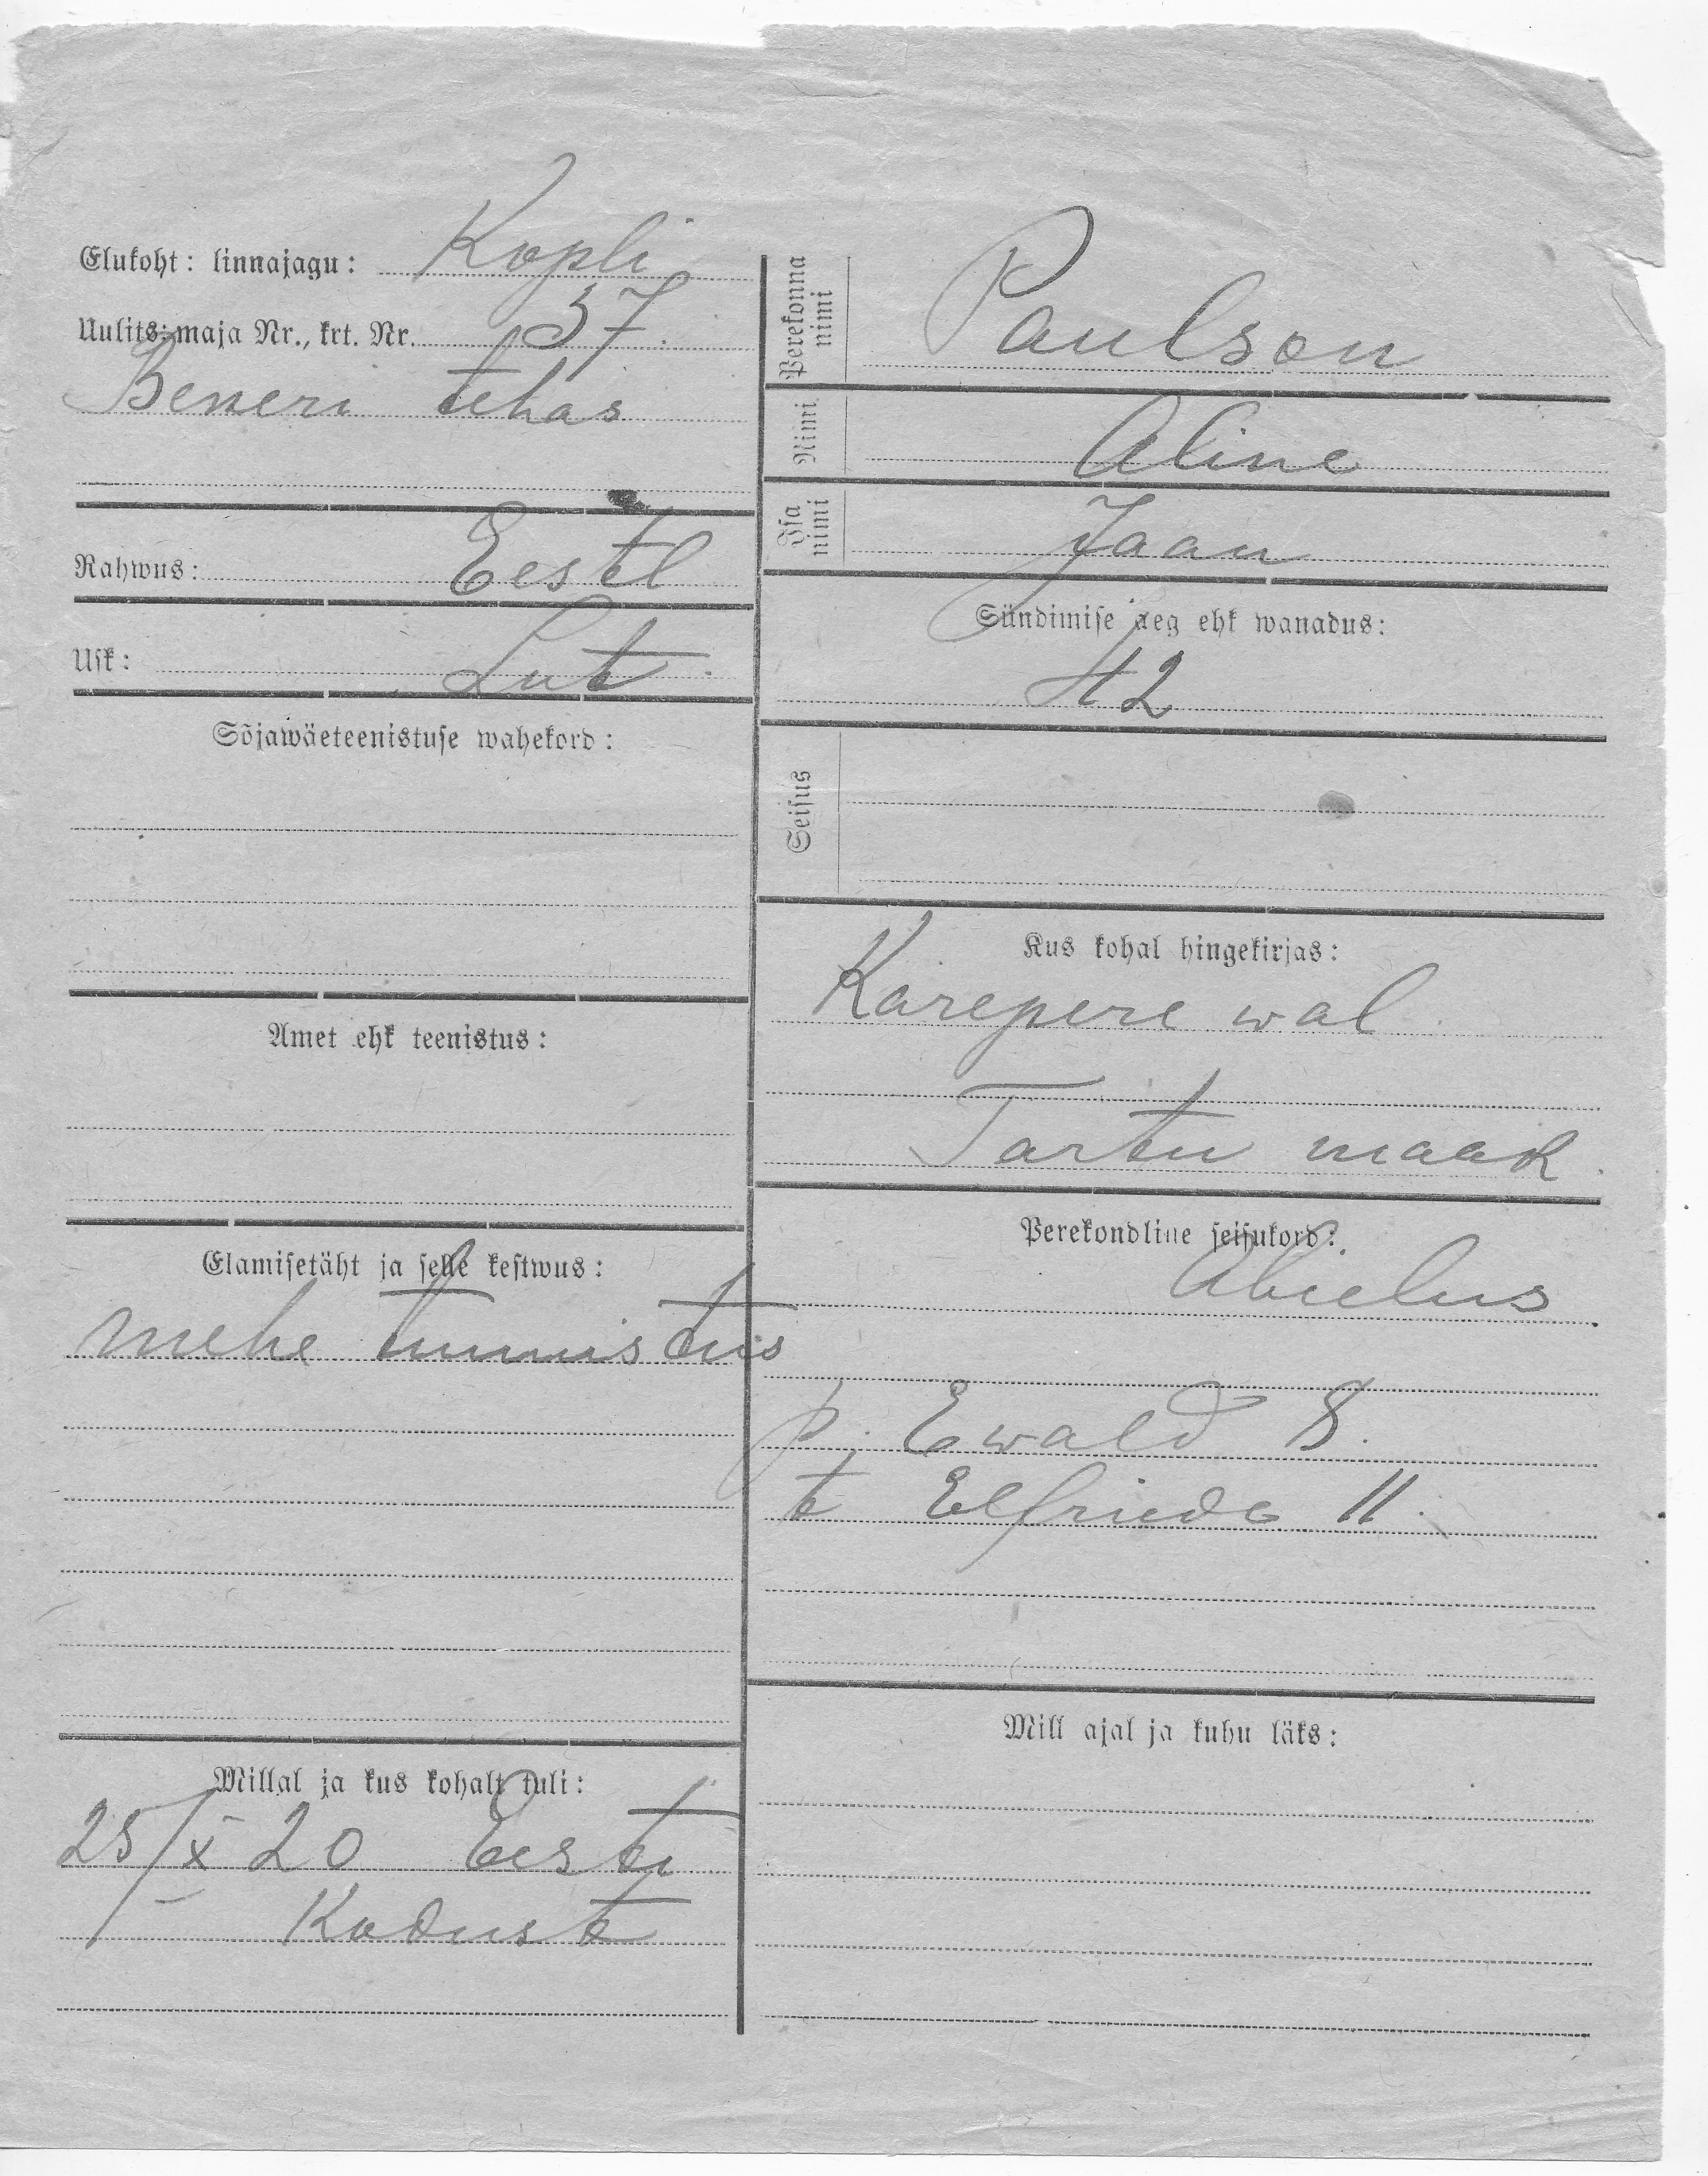 Elukoht: linnajagu: Kopli
Uulits: maja Nr., krt. Nr. 37
Bekeri tehas
Rahwus: Eestl
Usk: Lut.
Sõjawäeteenistuse wahekord:
Amet ehk teenistus:
Elamisetäht ja selle kestwus:
mehe tunnistus
Millal ja kus kohalt tuli:
25/X 20 Eesti
Kodust
Perekonna nimi Paulson
Nimi Aline
Isa nimi Jaan
Sündimise aeg ehk wanadus:
42
Seisus
Kus kohal hingekirjas:
Karepere wal
Tartu maak.
Perekondline seisukord:
Abielus
p. Ewald 8.
t Elfriede 11.
Mill ajal ja kuhu läks: